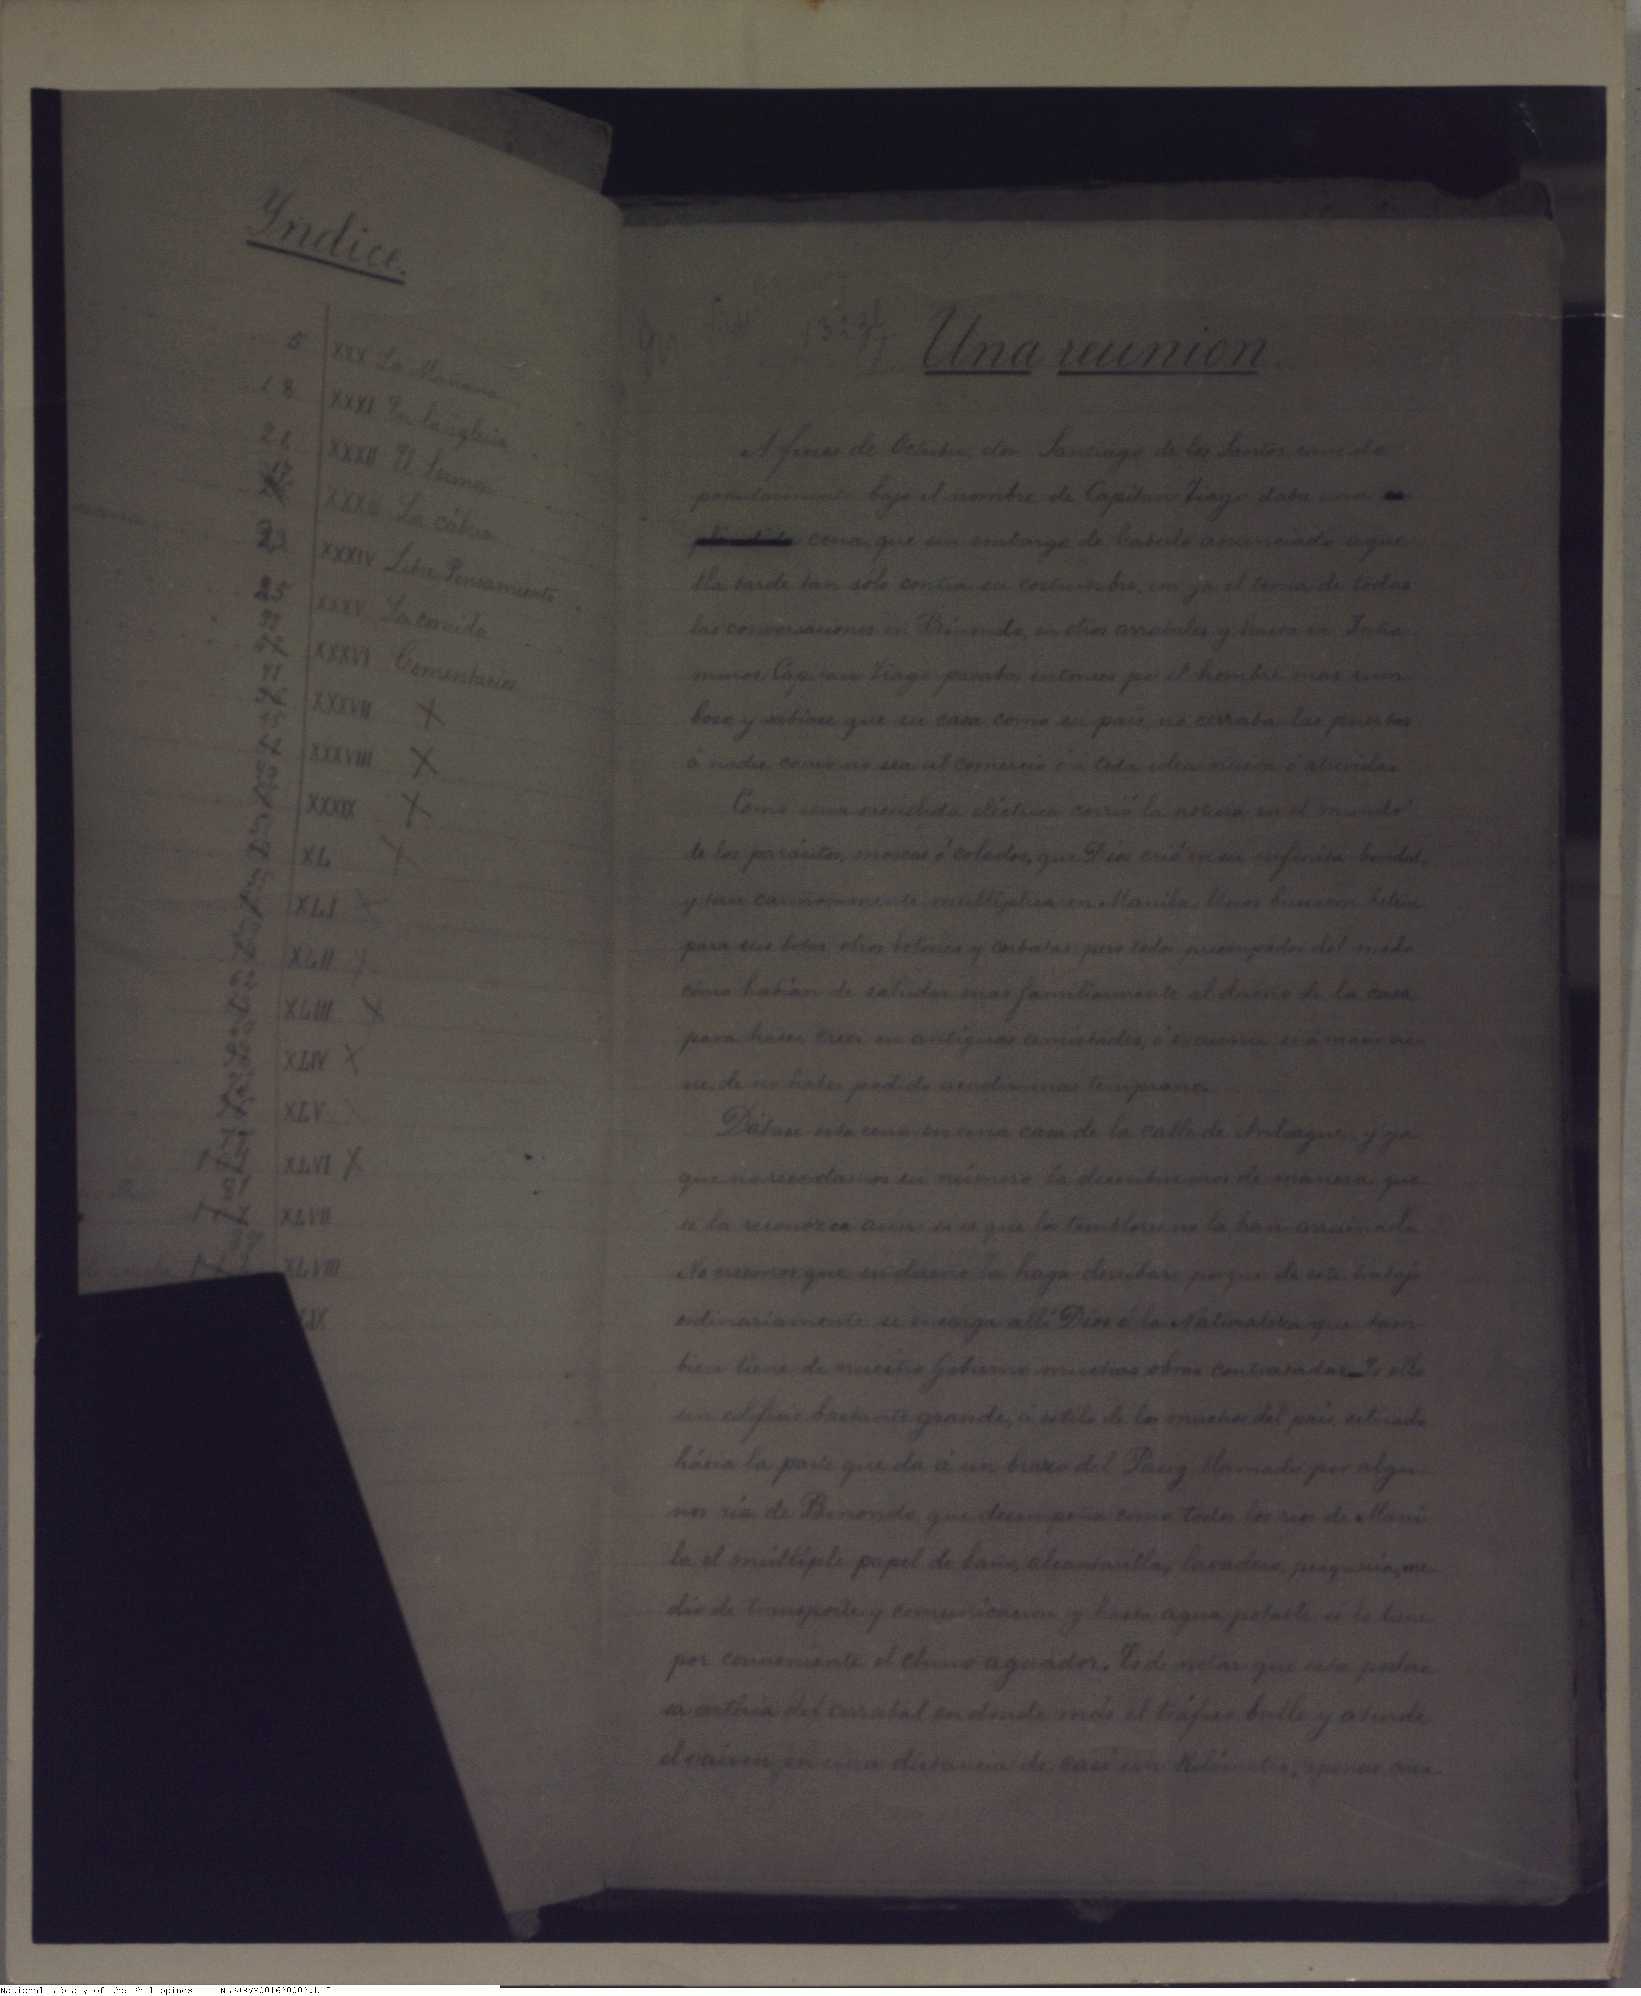 Yndice.
5 XXX La Mañana
18 XXXI En la iglesia
21 XXXII El Sermon
XXXIII La cábria
23 XXXIV Libre Pensamiento
25 XXXV La comida
XXXVI Comentarios
XXXVII X
XXXVIII X
XXXIX X
XL X
XLI X
XLII X
XLIII X
XLIV X
XLV X
XLVI X
XLVII
XLVIII
Una reunion.
A fines de Octubre, don Santiago de los Santos conocido
popularmente bajo el nombre de Capitan Tiago daba una
cena, que sin embargo de haberlo anunciado aque
lla tarde tan solo contra su costumbre, era ya el tema de todas
las conversaciones en Binondo, en otros arrabales y hasta en Intra
muros. Capitan Tiago pasaba entonces por el hombre mas rum
boso y sabíase que su casa como su país, no cerraba las puertas
á nadie como no sea al comercio ó á toda idea nueva ó atrevida.
Como una sacudida eléctrica corrió la noticia en el mundo
de los parásitos, moscas ó colados, que Dios crió en su infinita bondad,
y tan cariñosamente multiplica en Manila. Unos buscaron betún
para sus botas, otros botones y corbatas pero todos preocupados del modo
cómo habían de saludar mas familiarmente al dueño de la casa
para hacer creer en antiguas amistades, ó excusarse si á mano vie
ne, de no haber podido acudir mas temprano.
Dábase esta cena en una casa de la calle de Anloague, y ya
que no recordamos su número la describiremos de manera que
se la reconozca aun si es que los temblores no la han arruinado
No creemos que su dueño la haga derribar porque de este trabajo
ordinariamente se encarga allí Dios ó la Naturaleza que tam
bien tiene de nuestro Gobierno muchas obras contratadas_ Es ello
un edificio bastante grande, á estilo de los muchos del país, situado
hácia la parte que da á un brazo del Pasig llamado por algu
nos ria de Binondo, que desempeña como todos los rios de Mani
la el múltiple papel de baño, alcantarilla, lavadero, pesquería, me
dio de transporte y comunicacion y hasta agua potable si lo tiene
por conveniente el chino aguador. Es de notar que esta podero
sa arteria del arrabal en donde más el tráfico bulle y aturde
el vaiven, en una distancia de casi un Kilómetro, apenas cuen